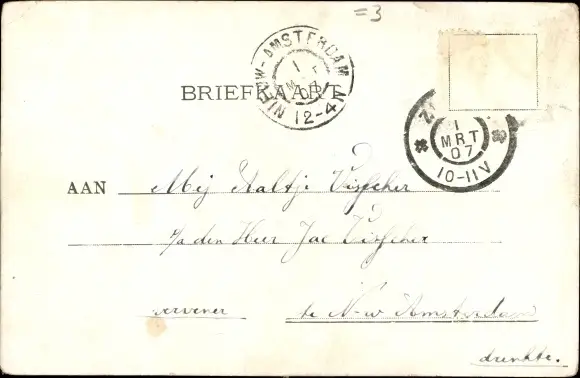 =3
NIEUW-AMSTERDAM
1 MRT 07
12-4N
BRIEFKAART
1
MRT
07
10-11V
AAN Mej Aaltje Visscher
p/a den Heer Jac Visscher
vervener te N-w Amsterdam
drenthe.